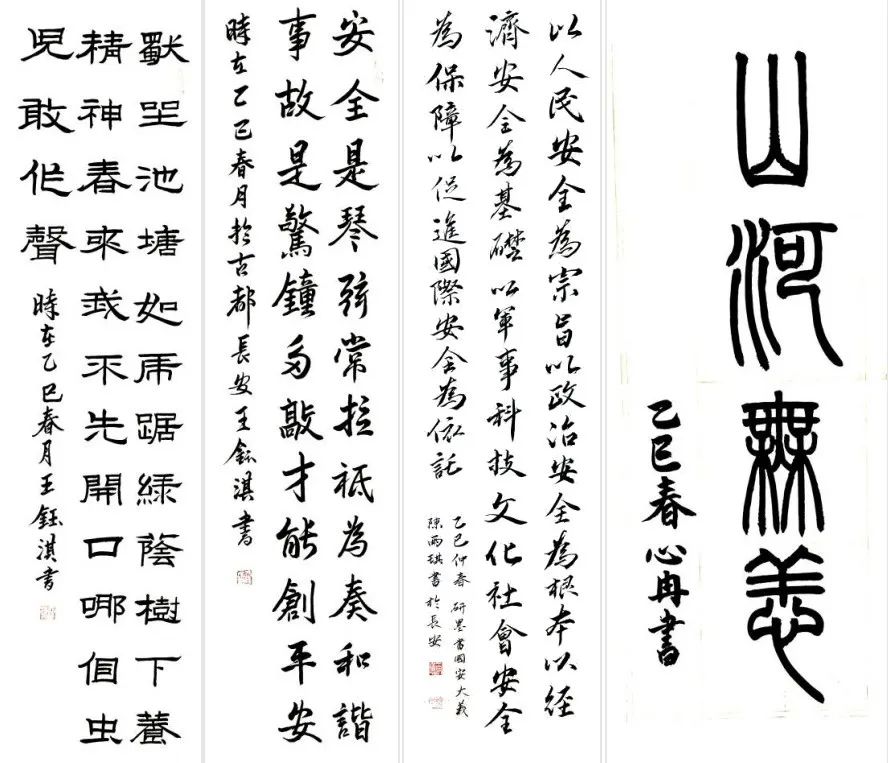 山河無恙
乙巳春心冉書
以人民安全為宗旨以政治安全為根本以經
濟安全為基礎以軍事科技文化社會安全
為保障以促進國際安全為依託
乙巳仲春研墨書國安大義
陳雨琪書於長安
安全是琴弦常拉衹為奏和諧
事故是驚鐘多敲才能創平安
時在乙巳春月於古都長安王鈺淇書
獨坐池塘如虎踞綠蔭樹下養
精神春來我不先開口哪個虫
兒敢作聲
時在乙巳春月王鈺淇書